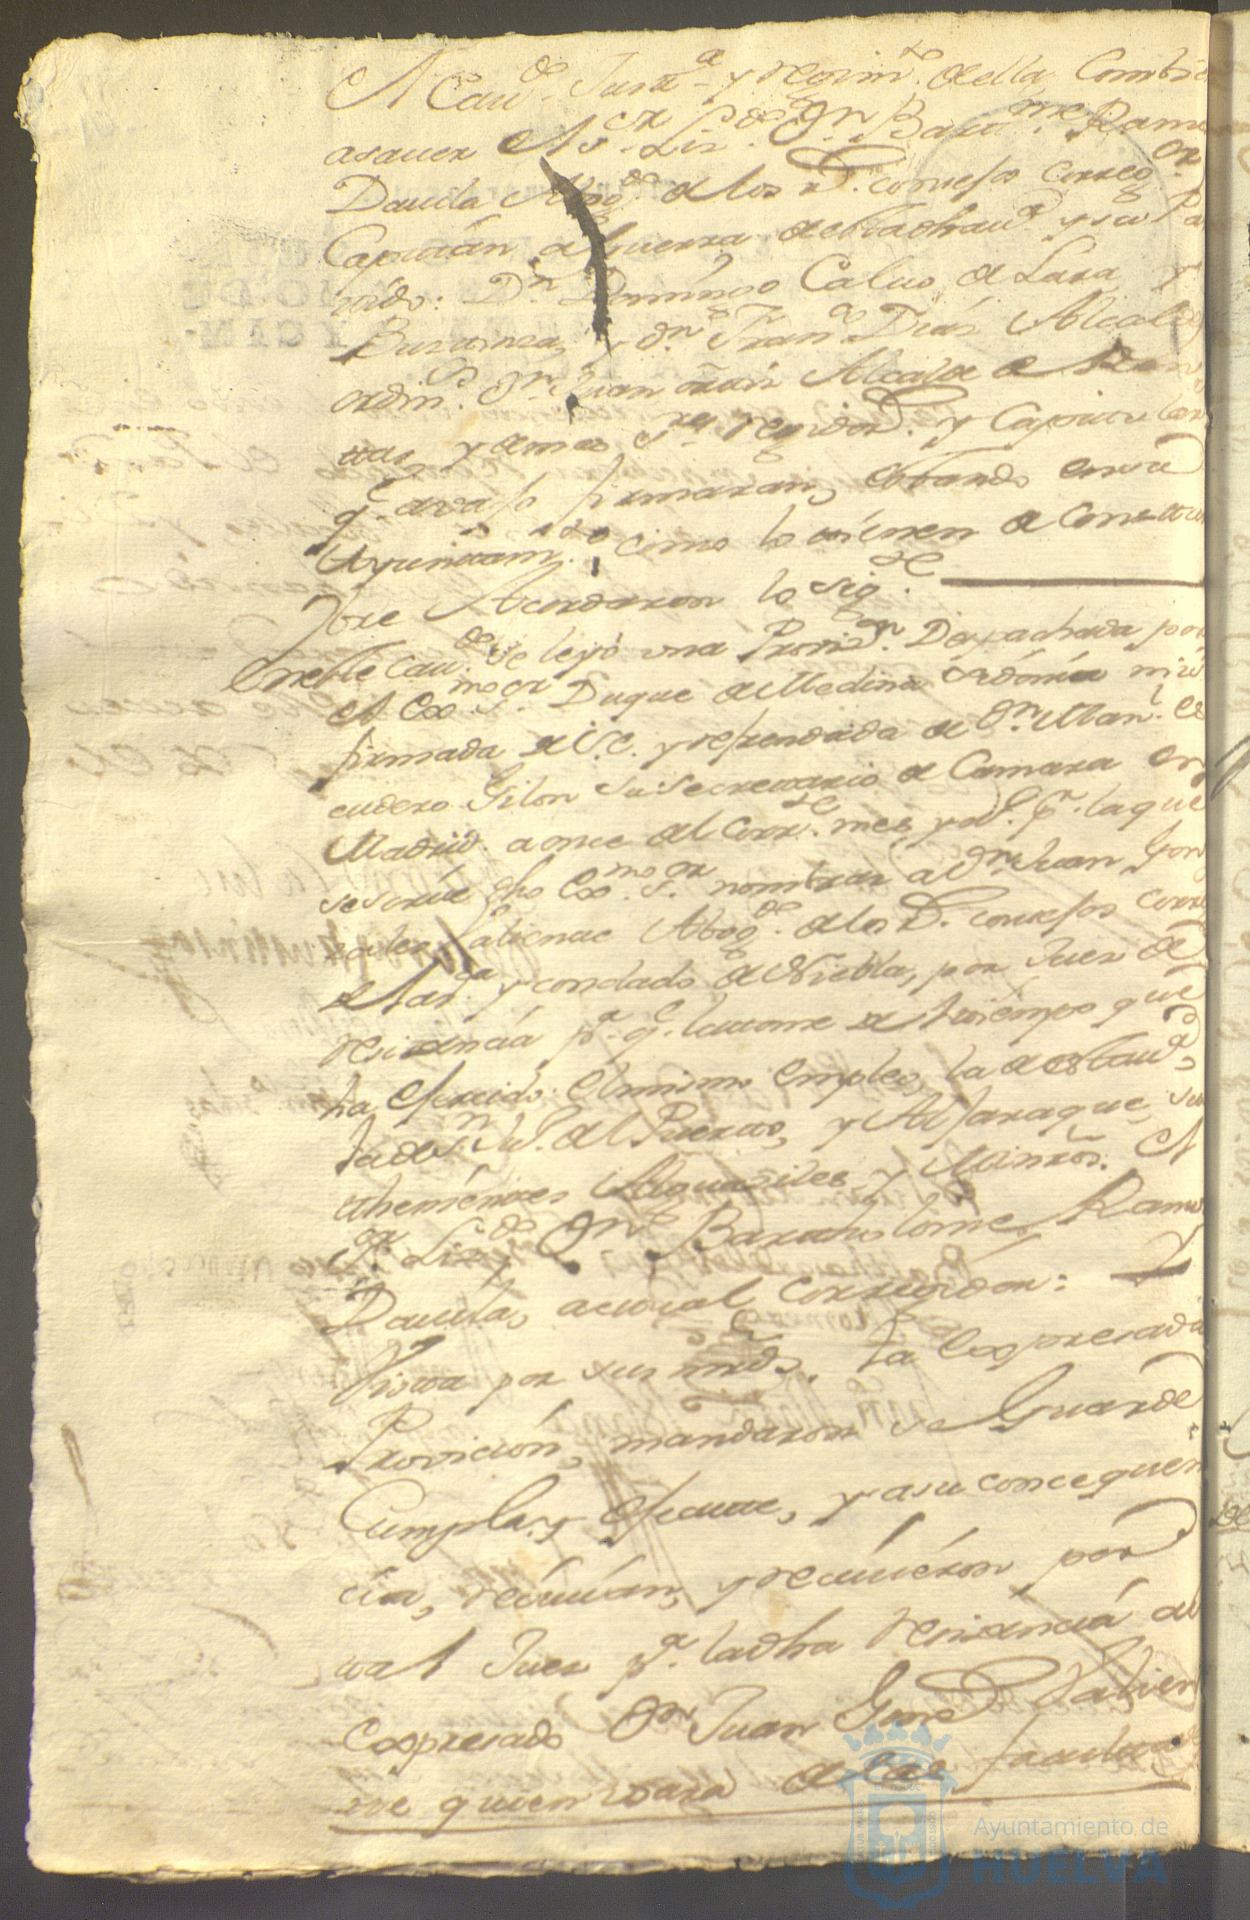 A Cav.do Just.a y regim.te de ella, Combie
asauer el S.or Liz.do Dn Bart.me Ramos
Dauila Abog.do de los R.s consejos correg.or
Capitan a Guerra de esta dha v.a y su Par
tido: Dn Domingo Caluo de Lara y
Buruinza, y dn Fran.co Diaz Alcaldes
ordin.os dn Juan Alcalde de
ttas, y demas S.res regidor.s y Capitulares
q.e avajo firmaran, estando en su
Ayuntam.to como lo tienen de Constum
bre Acordaron lo sig.te
En este Cav.do se leyó una Provis.on Despachada por
el Exmo S.r Duque de Medina Sidonia mi S.r
firmada de S.E. y refrendada de Dn Man.l Es
cudero Gilon su Secretario de Camara en
Madrid a once del Corr.te mes y a.o p.r la que
se sirue dho Exmo S.r nombrar a Dn Juan Gon
zales Salienac Abog.do de los R.s consejos corre
y condado de Niebla, por Juez de
residencia p.a q.e la tome de el tiempo que
ha ejercido el mismo empleo, la de esta v.a,
la de S.n Ju.o del Puerto, y Aljaraque, sus
thenientes Alguaziles y Ministros. Al
S.or Liz.do Dn Bartholome Ramos
Dauila, actual Corregidor: Y
Vista por sus mrds. la Expresada
Provicion, mandaron se Guarde
Cumpla, y ejecute, y a su concequen
cia, reciuian, y reciuieron por
tal Juez p.a la dha residencia al
Expresado Dn Juan Gonz.s Salien
ac quien usara de las facultades
Ayuntamiento de
HUELVA